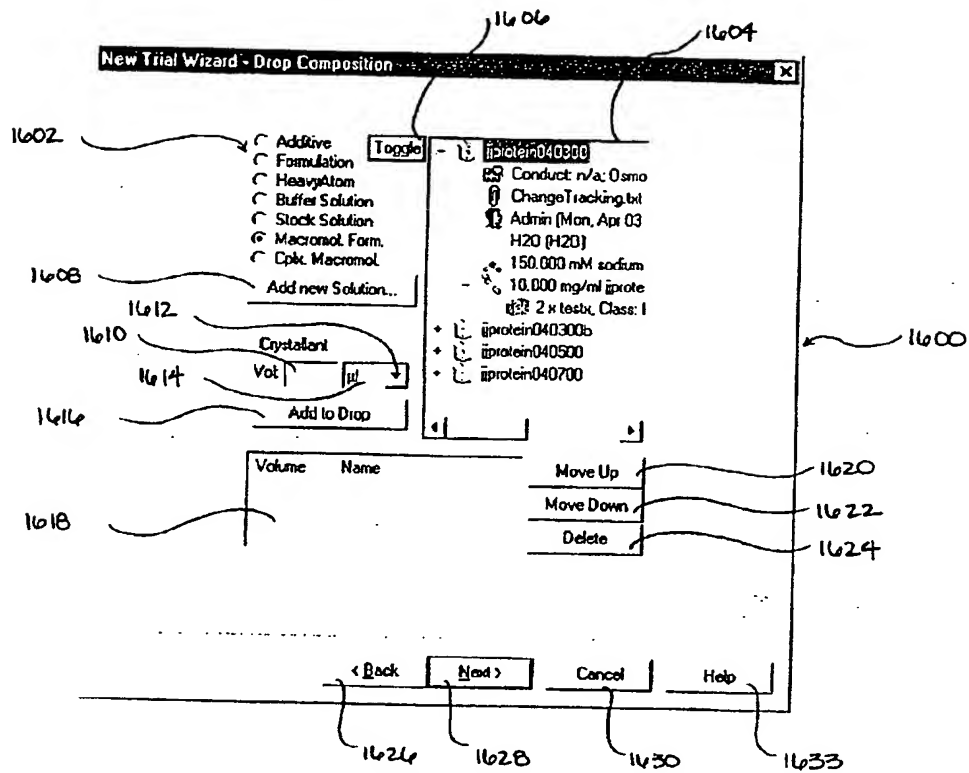 1606
1604
New Trial Wizard - Drop Composition
1602
Additive
Formulation
HeavyAtom
Buffer Solution
Stock Solution
Macromol. Form.
Cplx. Macromol.
Toggle
jjprotein040300
Conduct: n/a; Osmo
ChangeTracking.txt
Admin (Mon, Apr 03
H2O (H2O)
150.000 mM sodium
10.000 mg/ml jjprote
2 x testx, Class: I
jjprotein040300b
jjprotein040500
jjprotein040700
1608
Add new Solution...
1612
1610
Crystallant
Vol:
µl
1614
1600
1616
Add to Drop
Volume Name
1618
Move Up
1620
Move Down
1622
Delete
1624
< Back
Next >
Cancel
Help
1626
1628
1630
1633